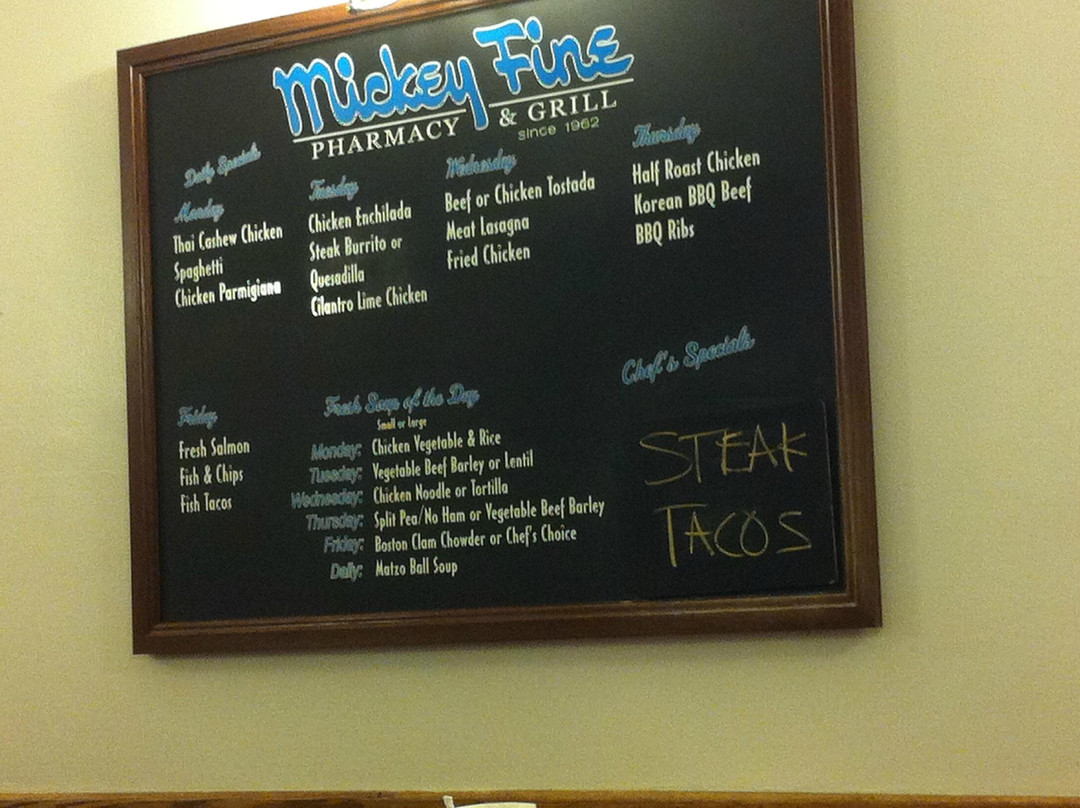 Mickey Fine
PHARMACY & GRILL
since 1962
Daily Specials
Monday
Thai Cashew Chicken
Spaghetti
Chicken Parmigiana
Tuesday
Chicken Enchilada
Steak Burrito or
Quesadilla
Cilantro Lime Chicken
Wednesday
Beef or Chicken Tostada
Meat Lasagna
Fried Chicken
Thursday
Half Roast Chicken
Korean BBQ Beef
BBQ Ribs
Friday
Fresh Salmon
Fish & Chips
Fish Tacos
Fresh Soup of the Day
Small or large
Monday: Chicken Vegetable & Rice
Tuesday: Vegetable Beef Barley or Lentil
Wednesday: Chicken Noodle or Tortilla
Thursday: Split Pea/No Ham or Vegetable Beef Barley
Friday: Boston Clam Chowder or Chef's Choice
Daily: Matzo Ball Soup
Chef's Specials
STEAK
TACOS